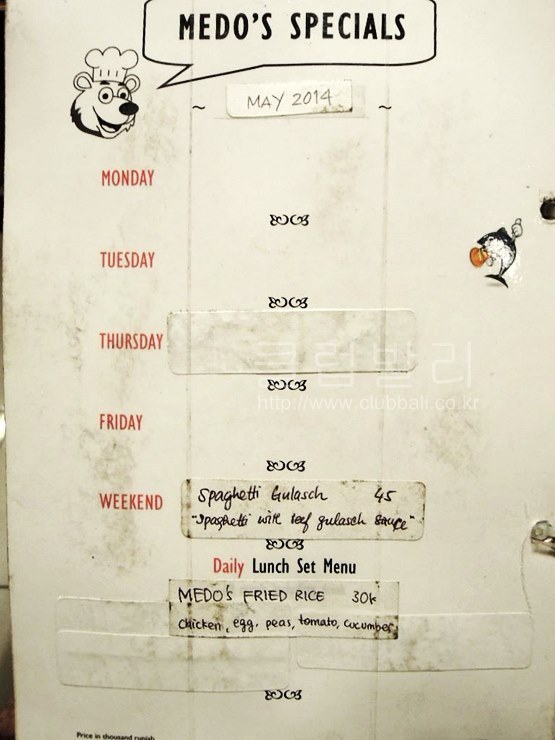 MEDO'S SPECIALS
~ MAY 2014 ~
MONDAY
TUESDAY
THURSDAY
클럽발리
http://www.clubbali.co.kr
FRIDAY
WEEKEND
Spaghetti Gulasch 45
"Spaghetti with beef gulasch sauce"
Daily Lunch Set Menu
MEDO'S FRIED RICE 30k
chicken, egg, peas, tomato, cucumber
Price in thousand rupiah